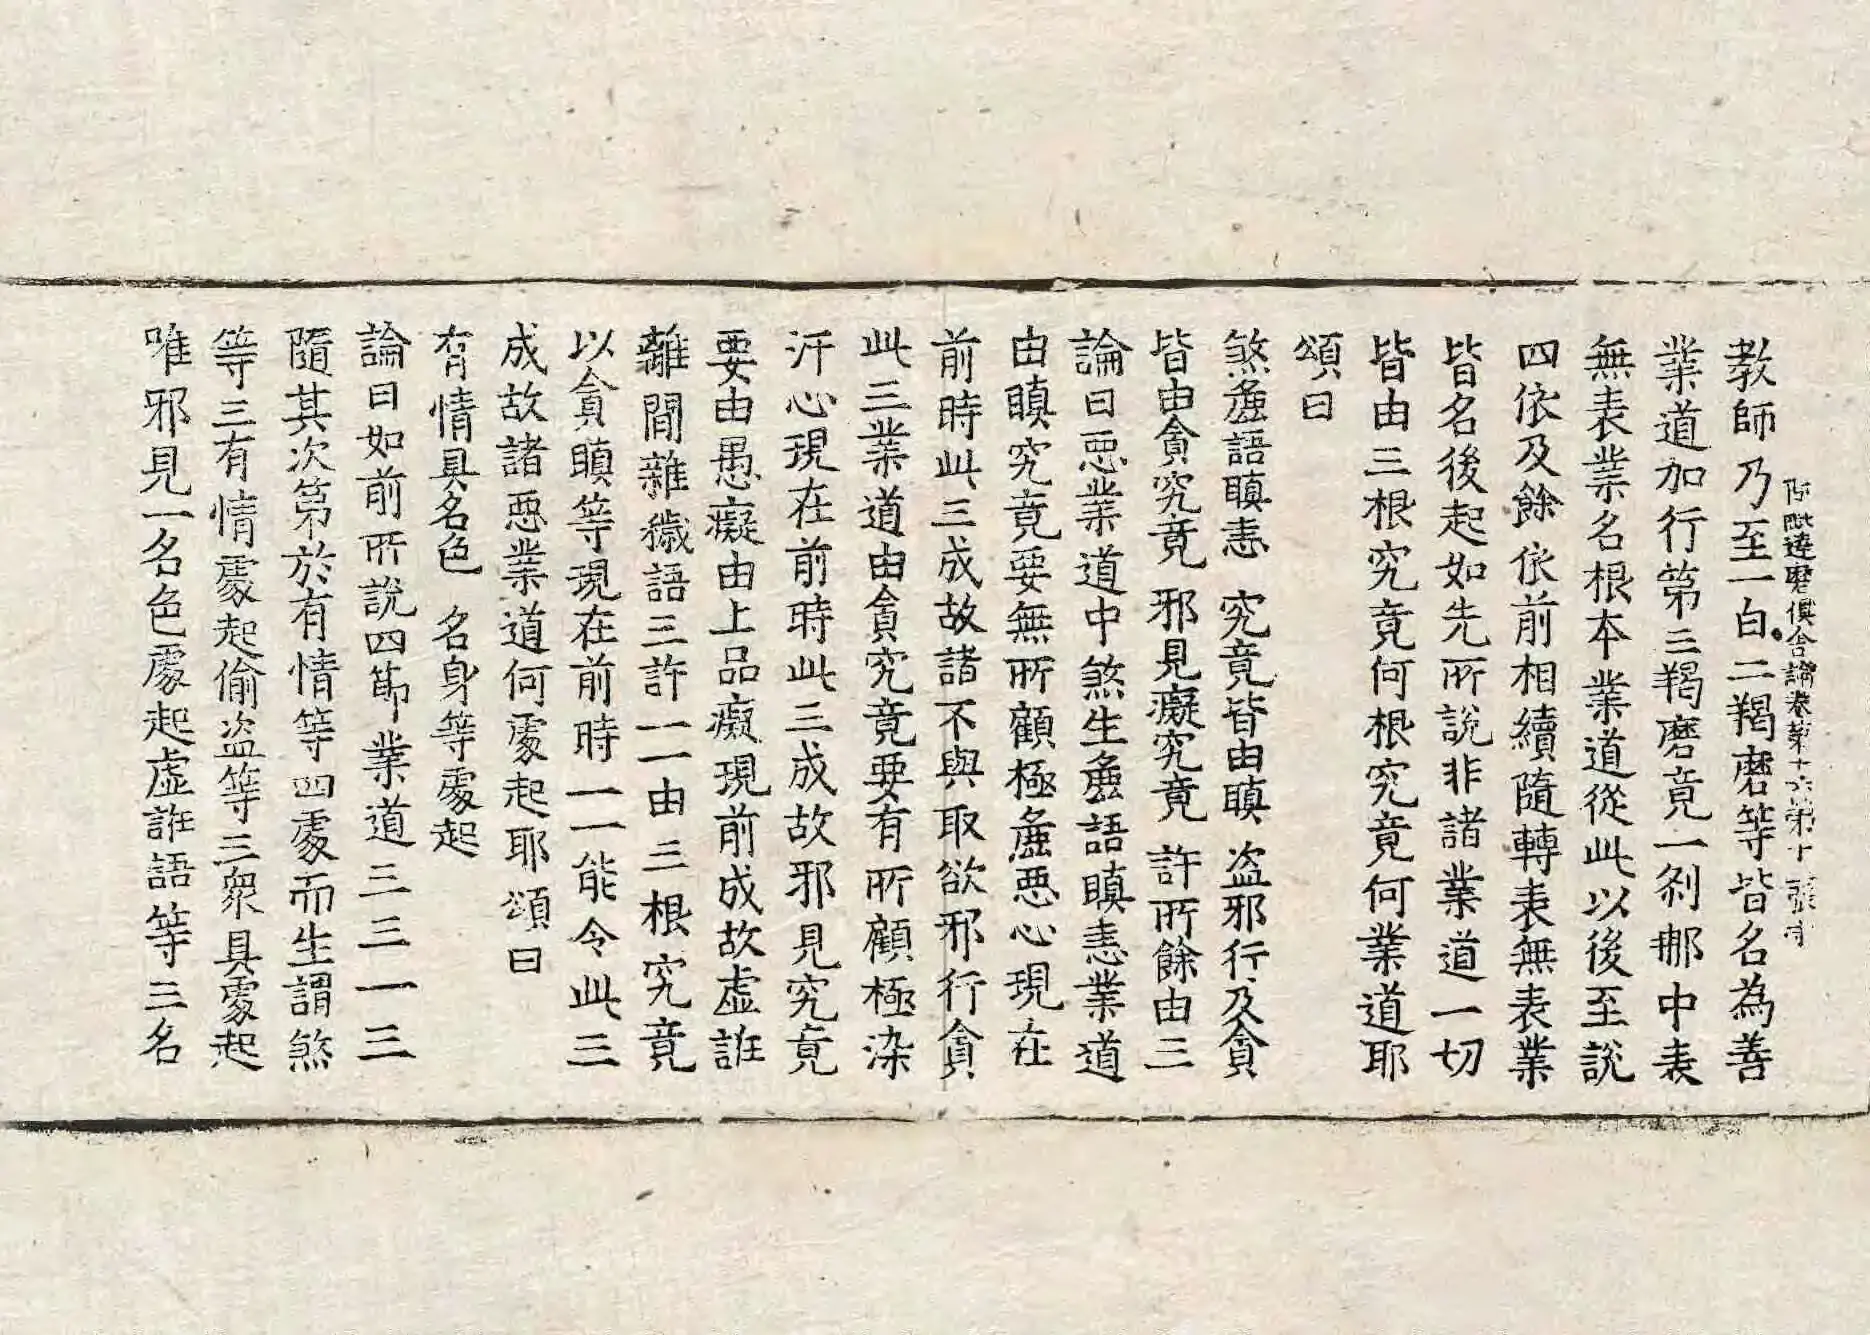 阿毗達磨俱舍論卷第十六第十張
教師乃至一白二羯磨等皆名為善
業道加行第三羯磨竟一剎那中表
無表業名根本業道從此以後至說
四依及餘依前相續隨轉表無表業
皆名後起如先所說非諸業道一切
皆由三根究竟何根究竟何業道耶
頌曰
煞麁語瞋恚 究竟皆由瞋 盜邪行及貪
皆由貪究竟 邪見癡究竟 許所餘由三
論曰惡業道中煞生麁語瞋恚業道
由瞋究竟要無所顧極麁惡心現在
前時此三成故諸不與取欲邪行貪
此三業道由貪究竟要有所顧極染
汙心現在前時此三成故邪見究竟
要由愚癡由上品癡現前成故虛誑
離間雜穢語三許一一由三根究竟
以貪瞋等現在前時一一能令此三
成故諸惡業道何處起耶頌曰
有情具名色 名身等處起
論曰如前所說四節業道三三一三
隨其次第於有情等四處而生謂煞
等三有情處起偷盜等三眾具處起
唯邪見一名色處起虛誑語等三名